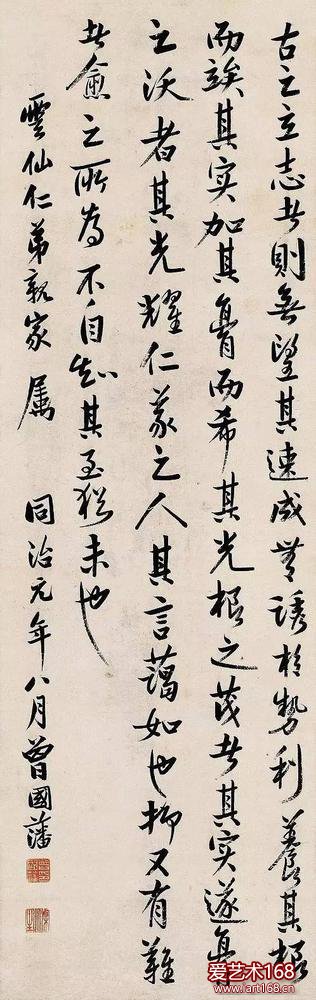 古之立志者則無望其速成無誘於勢利養其根
而竢其实加其膏而希其光根之茂者其实遂膏
之沃者其光耀仁義之人其言藹如也抑又有難
者愈之所為不自知其至猶未也
雲仙仁弟親家属 同治元年八月曾國藩
爱艺术168
www.art168.cn